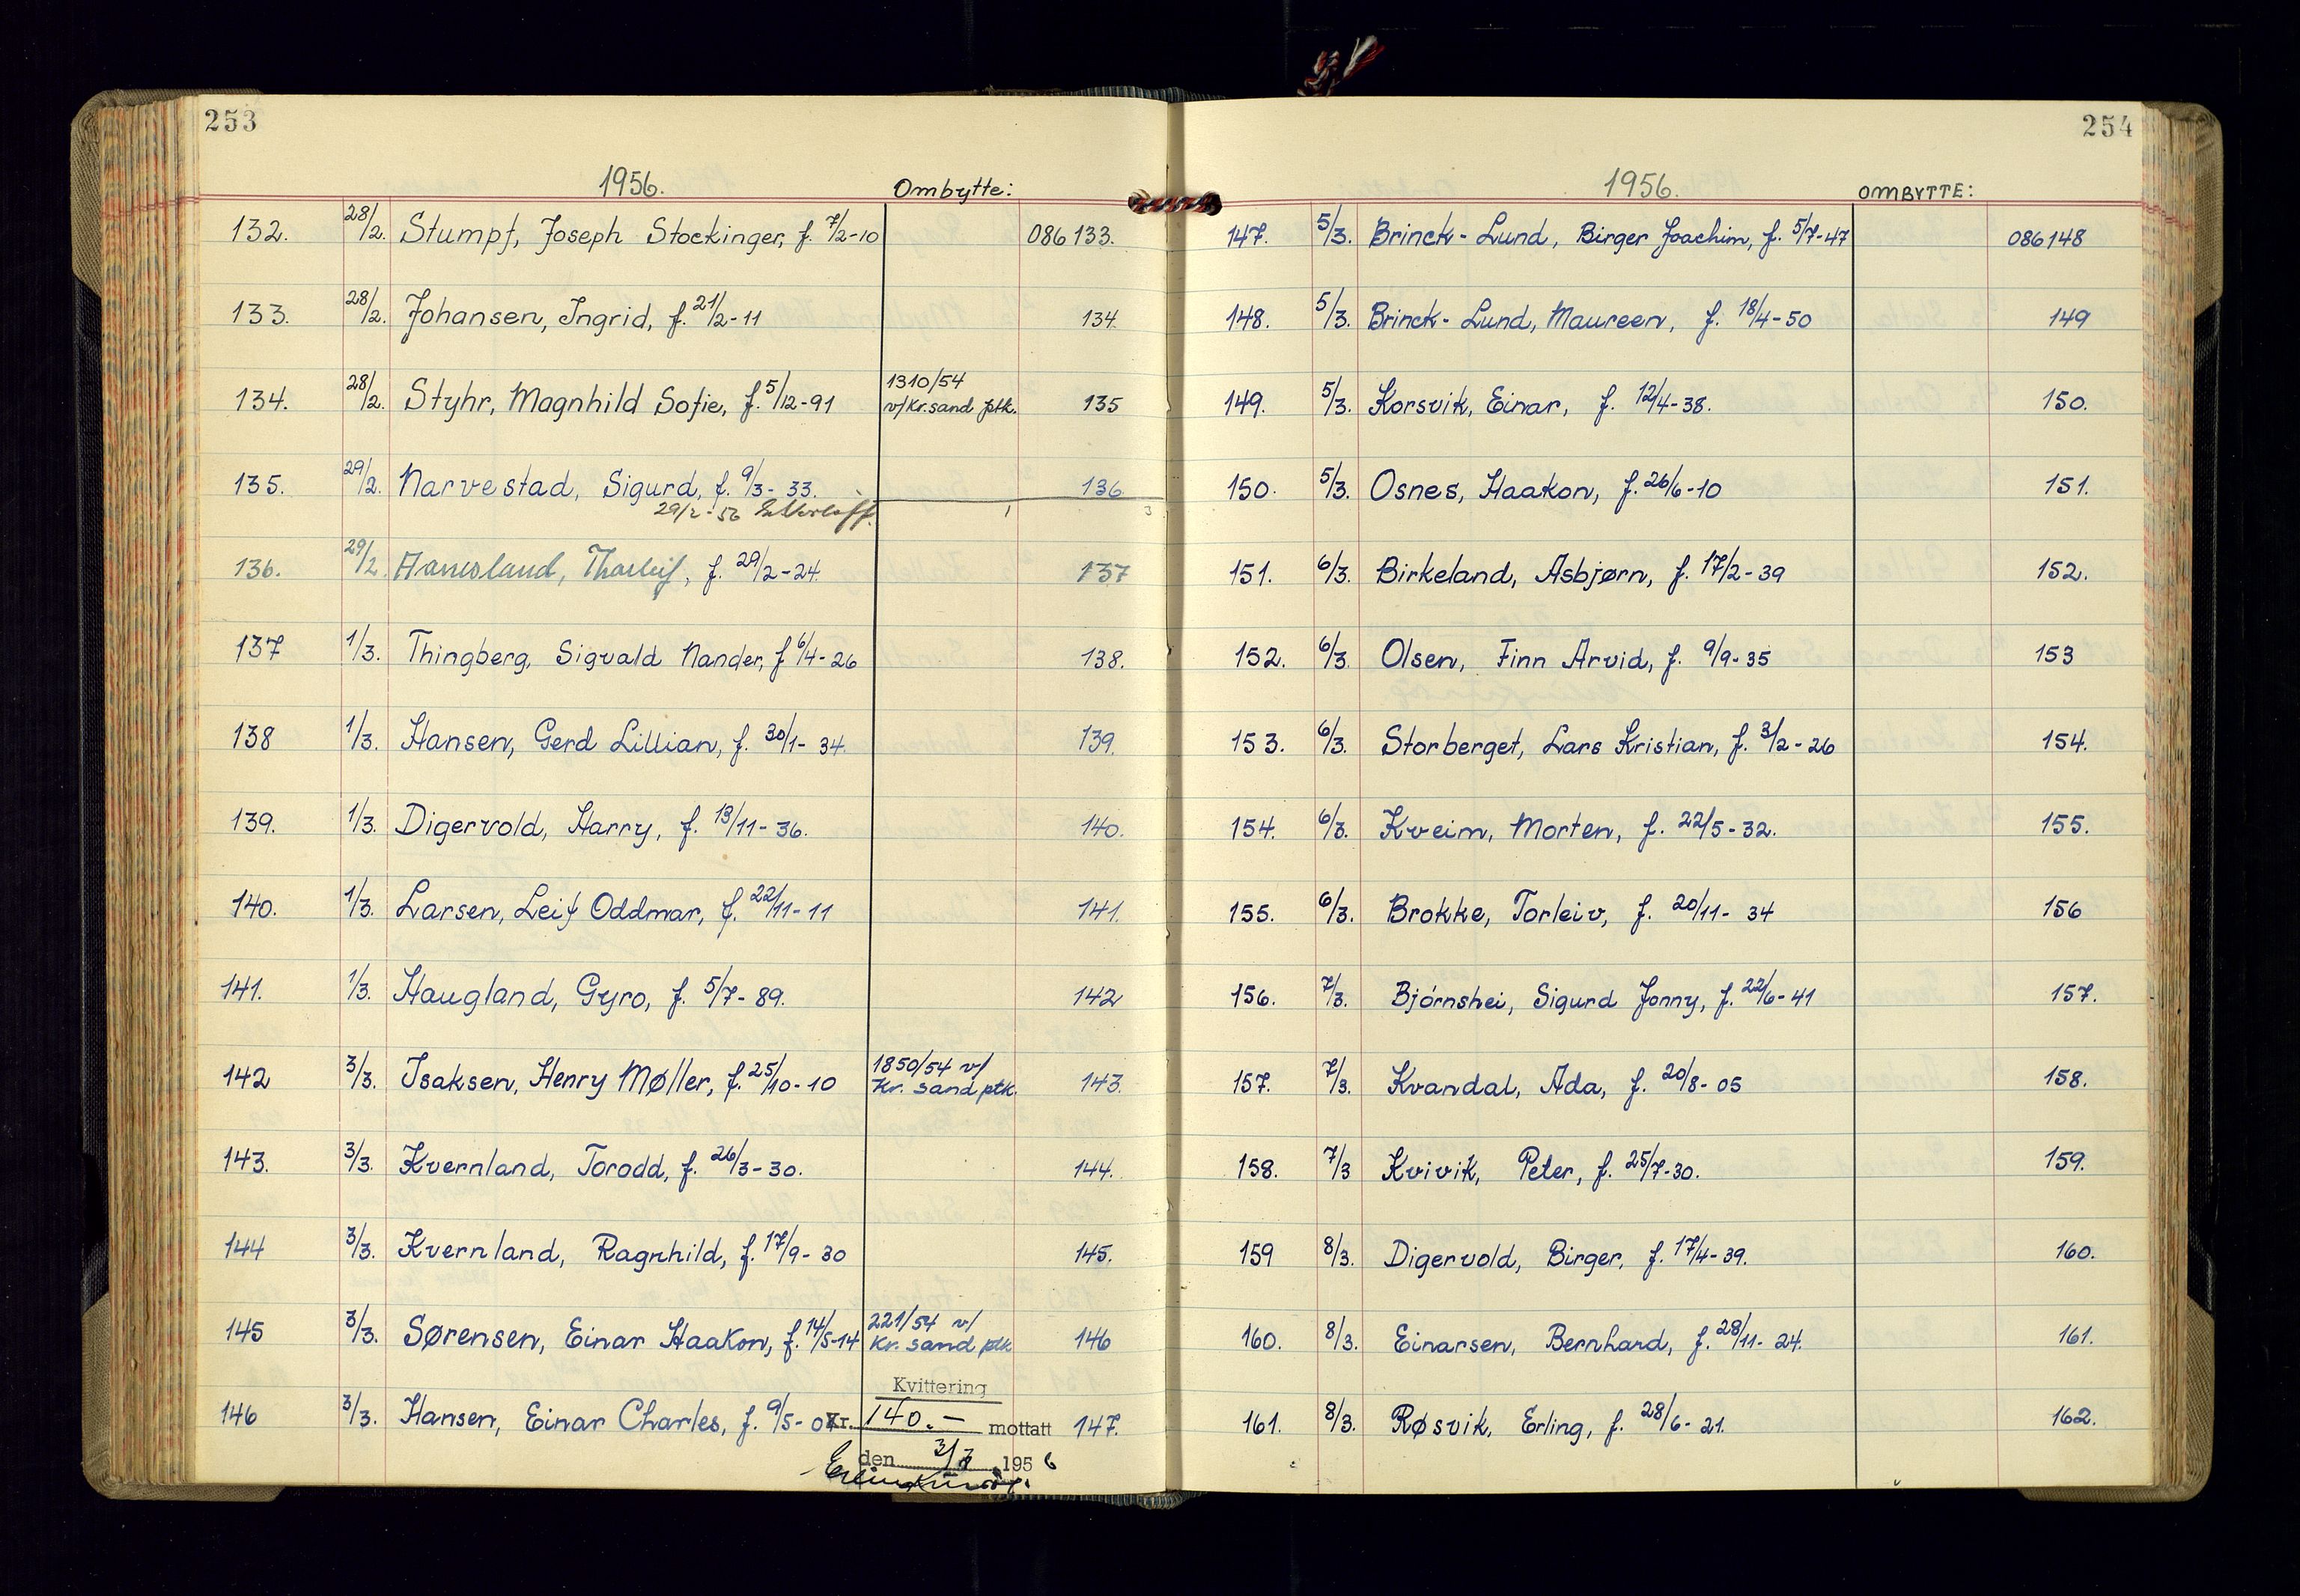 253
1956. Ombytte:
132. 28/2. Stumpf, Joseph Stockinger, f. 7/2-10 086133.
133. 28/2. Johansen, Ingrid, f. 21/2-11 134.
134. 28/2. Styhr, Magnhild Sofie, f. 5/12-91 1310/54 v/Kr.sand ptk. 135
135. 29/2. Narvestad, Sigurd, f. 9/3-33. 136.
29/2-56
136. 29/2. Thorleif, f. 29/2-24. 137
137 1/3. Thingberg, Sigvald Nander, f 6/4-26 138.
138 1/3. Hansen, Gerd Lillian, f. 30/1-34. 139.
139. 1/3. Digervold, Harry, f. 13/11-36. 140.
140. 1/3. Larsen, Leif Oddmar, f. 22/11-11 141.
141. 1/3. Haugland, Gyro, f. 5/7-89. 142
142 3/3. Isaksen, Henry Møller, f. 25/10-10 1850/54 v/ Kr. sand ptk. 143.
143. 3/3. Kvernland, Torodd, f. 26/3-30. 144.
144 3/3. Kvernland, Ragnhild, f. 17/9-30 145.
145 3/3. Sørensen, Einar Haakon, f. 14/5-14 221/54 v/ Kr. sand ptk 146
Kvittering
146 3/3. Hansen, Einar Charles, f. 9/5-07 Kr. 140.- mottatt 147.
den 3/3 1956
254
1956. OMBYTTE:
147. 5/3. Brinck-Lund, Birger Joachim, f. 5/7-47 086148
148. 5/3. Brinck-Lund, Maureen, f. 18/4-50 149
149. 5/3. Korsvik, Einar, f. 12/4-38. 150.
150. 5/3. Osnes, Haakon, f. 26/6-10 151.
151. 6/3. Birkeland, Asbjørn, f. 17/2-39 152.
152. 6/3. Olsen, Finn Arvid, f. 9/9-35 153
153. 6/3. Storberget, Lars Kristian, f. 3/2-26 154.
154. 6/3. Kveim, Morten, f. 22/5-32. 155.
155. 6/3. Brokke, Torleiv, f. 20/11-34 156
156. 7/3. Bjórnshei, Sigurd Jonny, f. 22/6-41 157.
157. 7/3. Kvandal, Ada, f. 20/8-05 158.
158. 7/3 Kvivik, Peter, f. 25/7-30. 159.
159 8/3. Digervold, Birger, f. 17/4-39. 160.
160. 8/3. Einarsen, Bernhard, f. 28/11-24. 161.
161. 8/3. Røsvik, Erling, f. 28/6-21. 162.